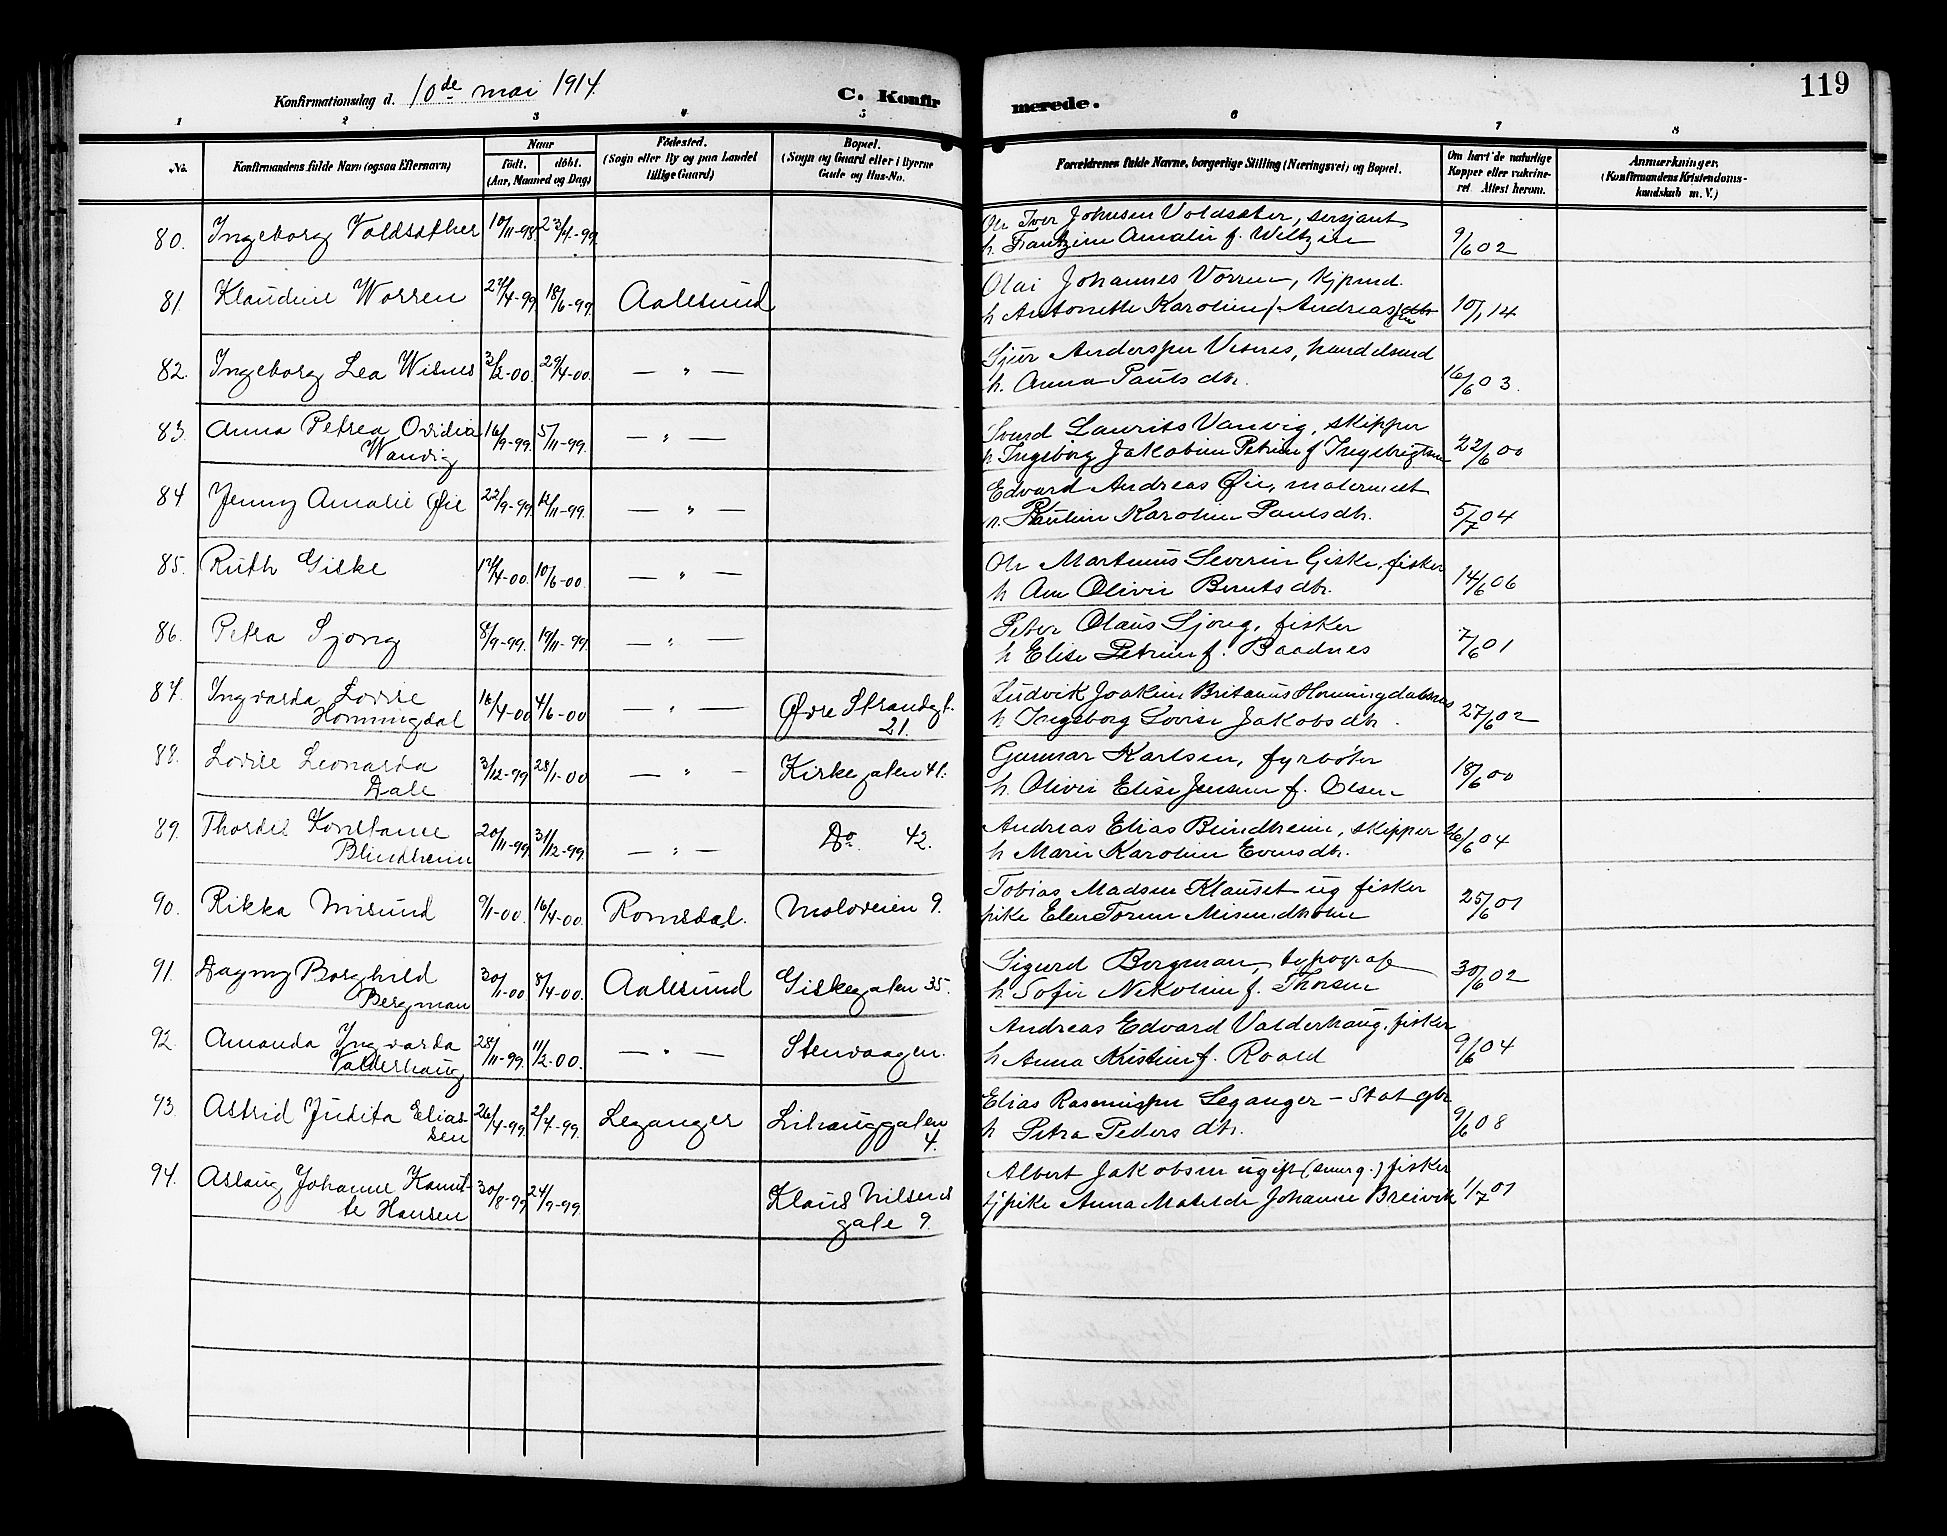 Konfirmationsdag d. 10de mai 1914.
C. Konfirmerede.
119
1 2 3 4 5 6 7 8
No.
Konfirmandens fulde Navn (ogsaa Efternavn)
Naar
født. døbt.
(Aar, Maaned og Dag)
Fødested.
(Sogn eller By og paa Landet
tillige Gaard)
Bopæl.
(Sogn og Gaard eller i Byerne
Gade og Hus-No.
Forældrenes fulde Navne, borgerlige Stilling (Næringsvei) og Bopæl.
Om havt de naturlige
Kopper eller vakcine-
ret. Attest herom.
Anmærkninger.
(Konfirmandens Kristendoms-
kundskab m. V.)
80. Ingeborg Voldsæther 10/11-98. 23/4-99. Ole Iver Johnsen Voldsæter, sersjant
h. Frantzine Amalie f. Weltzien 9/6 02
81 Klaudine Worren 27/4-99 18/6-99. Aalesund Olai Johannes Vorren, kjpmd.
h Antonette Karoline f Andreassen 10/1 14
82. Ingeborg Lea Wisnes 3/2-00. 29/4-00. — " — Sjur Andersen Visnes, handelsmd
h. Anna Pauls dtr. 16/6 03.
83. Anna Petrea Ovidia 16/9-99. 5/11-99. — " — Svend Laurits Vanvig, skipper
Wanvig h Ingeborg Jakobine Petrine f Ingebrigtsen 22/6 00
84 Jenny Amalie Øie 22/9-99. 12/11-99. — " — Edvard Andreas Øie, malermest
h. Pauline Karoline Paulsdtr. 5/7 04
85. Ruth Giske 17/4-00. 10/6-00. — " — Ole Martinus Severin Giske, fisker
h Ane Olivie Bernts dtr. 14/6 06
86. Petra Sjong 8/9-99. 19/11-99. — " — Peter Olaus Sjong, fisker
h Elise Petrine f. Baadnes 7/6 01
87. Ingvarda Lovise 16/4-00 4/6-00 — " — Øvre Strandgt. Ludvik Joakim Britanus Hornningdalsnes
Hornningdal 21. h Ingeborg Lovise Jakobs dtr. 27/6 02
88. Lovise Leonarda 3/12-99 28/1-00 — " — Kirkegaten 41. Gunnar Karlsen, fyrbøter
Dale h. Olivie Elise Jensine f. Olsen 18/6 00
89. Thordis Konstance 20/11-99. 31/12-99. — " — Do. 42. Andreas Elias Blindheim, skipper 26/6 04
Blindheim h Marie Karoline Evensdtr.
90. Rikka Misund 9/1-00. 16/4-00. Romsdal. Moloveien 9. Tobias Madsen Klauset ug fisker
pike Elen Torine Misundholm 25/6 01
91. Dagny Borghild 30/1-00 8/4-00. Aalesund Giskegaten 35. Sigurd Bergman, typograf
Bergman h. Sofie Nikoline f. Thorsen 30/6 02
92. Amanda Ingvarda 28/11-99. 11/2-00. — " — Stenvaagen. Andreas Edvard Valderhaug, fisker
Valderhaug h Anna Kristine f. Roald 9/6 04
93. Astrid Judita Elias- 26/4-99. 2/7-99. Leganger Lihauggaten Elias Rasmussen Leganger – Stat gbr
sen 4. h Petra Peders dtr. 9/6 08
94. Aslaug Johanne Kamit- 30/8-99. 24/9-99. Klaus Nilsens Albert Jakobsen ugift (senere g.) fisker
te Hansen gate 9. tj pike Anna Matilde Johanne Breivik 1/7 01